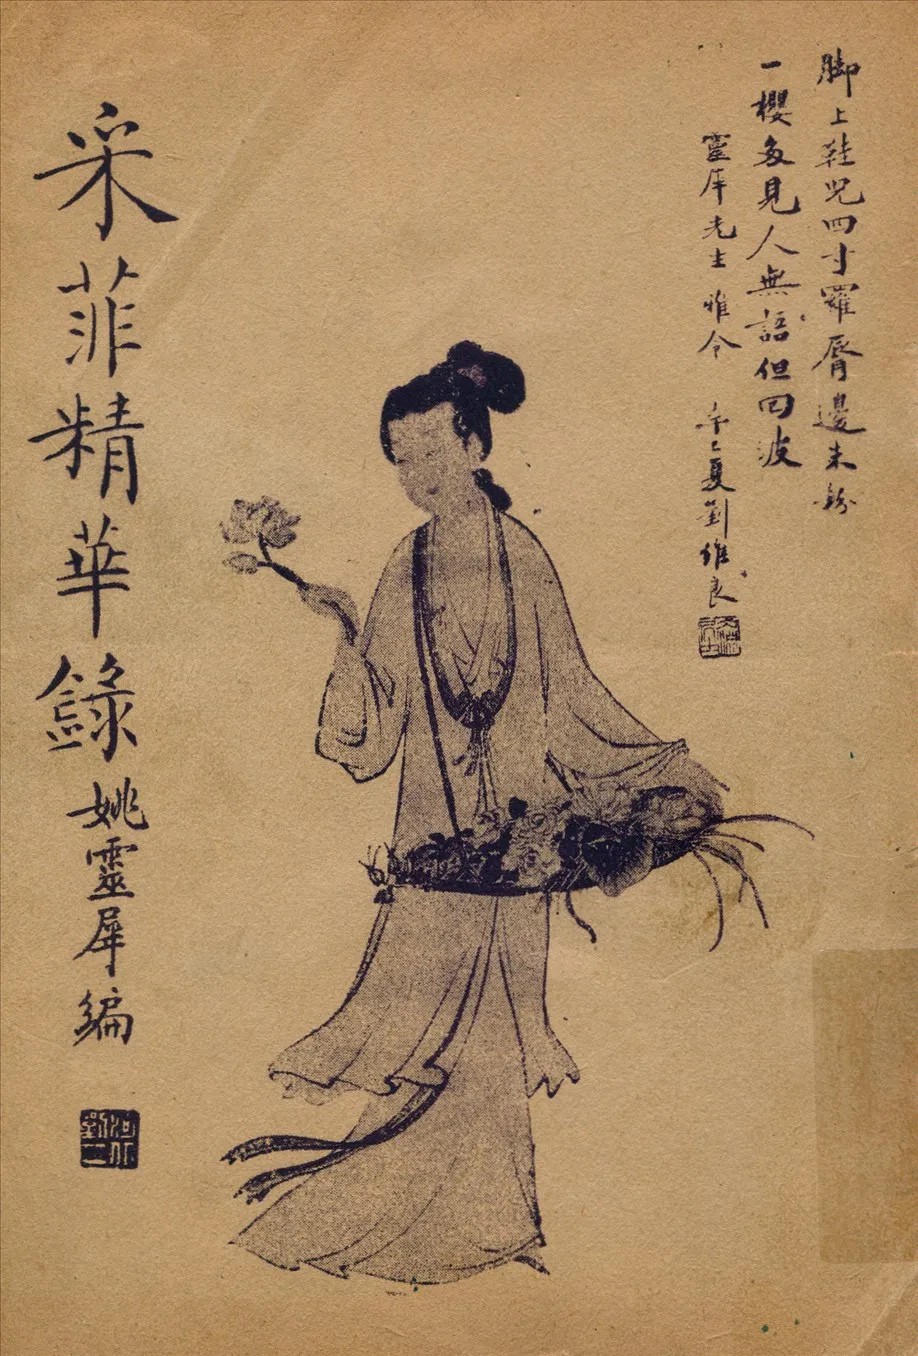 脚上鞋兒四寸羅脣邊朱粉
一櫻多見人無語但回波
靈犀先生雅令 辛巳夏劉維良
采菲精華錄 姚靈犀編